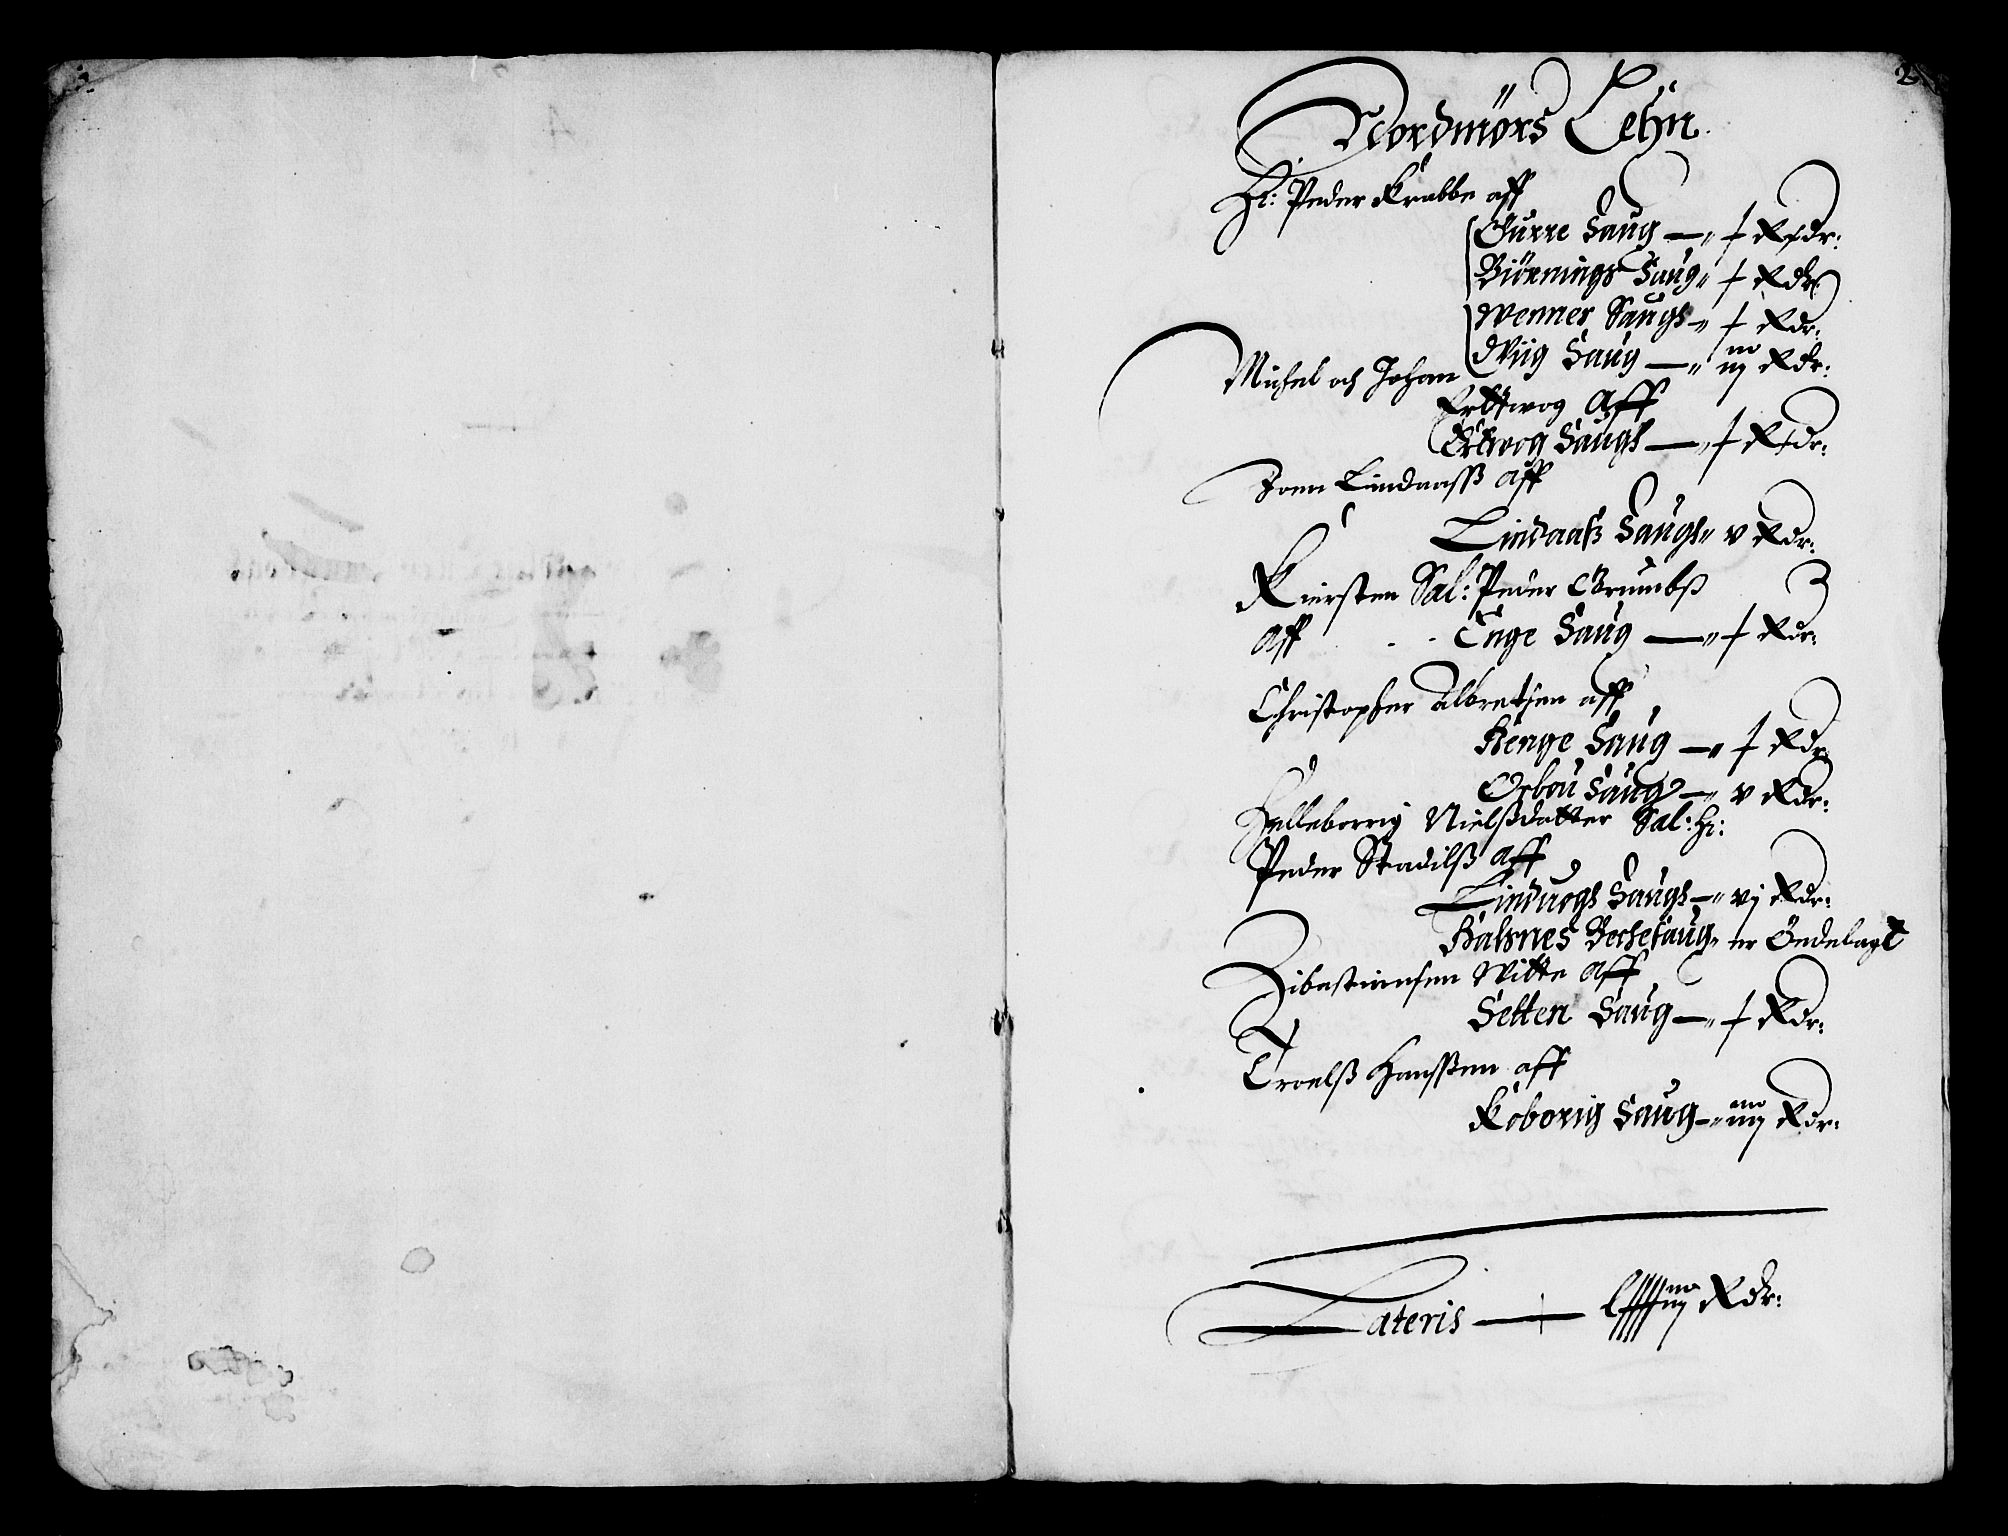 2
Nordmørs Lehn.
Hr: Peder Krabbe aff
Surre Saug — x Rdr:
Biørnings Saug x Rdr:
Wenner Saugs x Rdr:
Wiig Saug — iij Rdr:
Michel och Johan
Erttwog Aff
Ertwog Saugs — x Rdr:
Jonn Lindaass Aff
Lindaas Saugs v Rdr:
Kiersten Sal: Peder Grumbs
Aff Enge Saug — x Rdr:
Christopher Albretsen aff
Henge Saug — x Rdr:
Orbou Saug — v Rdr:
Helleborrig Nielsdatter Sal: Hr:
Peder Stadils Aff
Linduogs Saugs — vj Rdr:
Halsnes Becke saug er Ödelagt
Witte Aff
Setten Saug — x Rdr:
Troels Hanssen aff
Koborig Saug — iiij Rdr:
Lateris — Rdr: